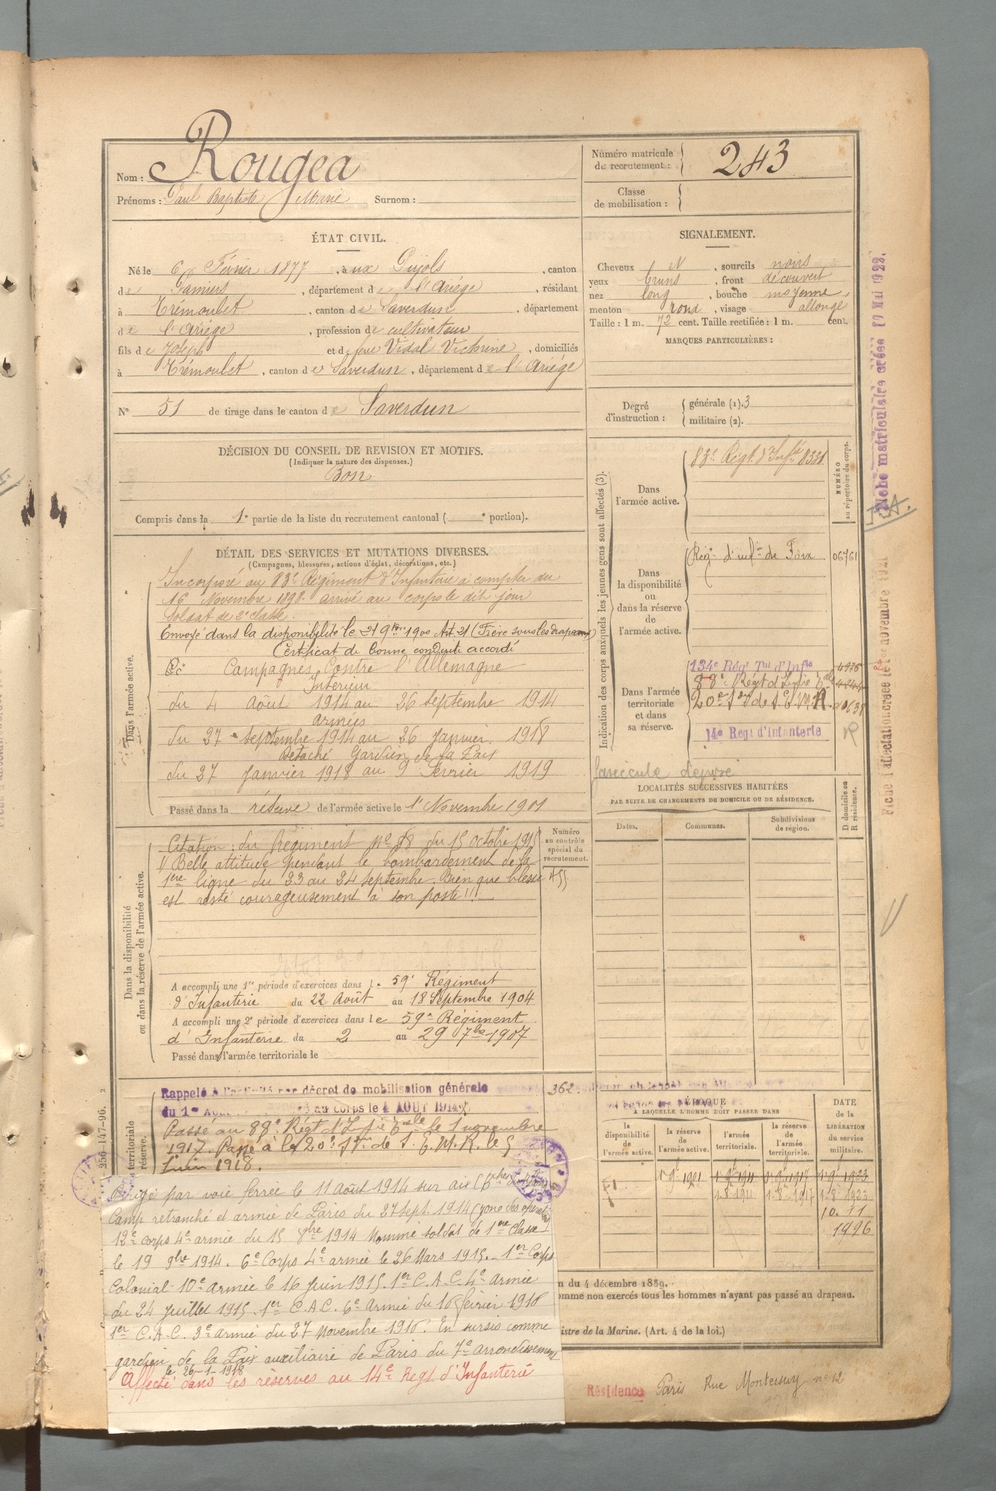 Nom : Rougea
Prénoms : Paul Baptiste Marie Surnom :
Numéro matricule de recrutement : 243
Classe de mobilisation :
ÉTAT CIVIL.
Né le 6 Février 1877, à ux Pujols, canton
de Pamiers, département de l'Ariège, résidant
à Trémoulet, canton de Saverdun, département
de l'Ariège, profession de cultivateur
fils de Joseph et de feue Vidal Victorine, domiciliés
à Trémoulet, canton de Saverdun, département de l'Ariège
N° 51 de tirage dans le canton de Saverdun
SIGNALEMENT.
Cheveux N, sourcils noirs
yeux bruns, front découvert
nez long, bouche moyenne,
menton rond, visage allongé
Taille : 1 m. 72 cent. Taille rectifiée : 1 m. cent.
MARQUES PARTICULIÈRES :
Degré d'instruction : générale (1). 3
militaire (2).
DÉCISION DU CONSEIL DE REVISION ET MOTIFS.
(Indiquer la nature des dispenses.)
Bon
Compris dans la 1e partie de la liste du recrutement cantonal ( e portion).
DÉTAIL DES SERVICES ET MUTATIONS DIVERSES.
(Campagnes, blessures, actions d'éclat, décorations, etc.)
Dans l'armée active.
Incorporé au 83e Régiment d'Infanterie à compter du
16 Novembre 1898 arrivé au corps le dit jour
Soldat de 2e classe.
Envoyé dans la disponibilité le 21 9bre 1900 Art. 21 (Frère sous les drapeaux)
Certificat de bonne conduite accordé
Campagnes Contre l'Allemagne
Intérieur
du 4 Août 1914 au 26 Septembre 1914
armées
du 27 Septembre 1914 au 26 Janvier 1918
détaché Gardien de la Paix
du 27 Janvier 1918 au 9 Février 1919
Passé dans la réserve de l'armée active le 1er Novembre 1901
Indication des corps auxquels les jeunes gens sont affectés (3).
NUMÉRO au répertoire du corps.
Dans l'armée active.
83e Régt d'Inftie
Dans la disponibilité ou dans la réserve de l'armée active.
Rég. d'inf. de Foix 06761
Dans l'armée territoriale et dans sa réserve.
134e Rég Tal d'Infie
20e Son de S.E.M.R
14e Régt d'Infanterie
fascicule
LOCALITÉS SUCCESSIVES HABITÉES
PAR SUITE DE CHANGEMENTS DE DOMICILE OU DE RÉSIDENCE.
Dates. Communes. Subdivisions de région. D domicile ou R résidence.
Dans la disponibilité ou dans la réserve de l'armée active.
Numéro au contrôle spécial du recrutement.
Citation du Régiment No 58 du 15 octobre 1915
"Belle attitude pendant le bombardement de la
1ère ligne du 23 au 24 septembre. Bien que blessé
est resté courageusement à son poste"
A accompli une 1re période d'exercices dans le 59e Régiment
d'Infanterie du 22 Août au 18 Septembre 1904
A accompli une 2e période d'exercices dans le 59e Régiment
d'Infanterie du 2 au 29 7bre 1907
Passé dans l'armée territoriale le
Rappelé à l'activité par décret de mobilisation générale 362
du 1er Août au corps le 4 AOUT 1914
Passé au 88e Régt d'Infie le 1 novembre
1917. Passé à la 20e Son de S.E.M.R. le 5
Juin 1918.
ÉPOQUE À LAQUELLE L'HOMME DOIT PASSER DANS
la disponibilité de l'armée active. la réserve de l'armée active. l'armée territoriale. la réserve de l'armée territoriale.
DATE de la LIBÉRATION du service militaire.
Dirigé par voie ferrée le 11 août 1914 sur
Camp retranché et armée de Paris du 27 sept 1914
12e corps 4e armée du 15 8bre 1914 Nommé soldat de 1ère Classe
le 19 9bre 1914. 6e Corps 4e armée le 26 Mars 1915. 1er Corps
Colonial 10e Armée le 16 Juin 1915, 1er C.A.C. 4e Armée
du 24 Juillet 1915. 1er C.A.C. 6e Armée du 16 février 1916
1er C.A.C. 3e Armée du 27 Novembre 1916. En sursis comme
gardien de la Paix auxiliaire de Paris du 7e arrondissement
le 26-1-1918
Affecté dans les réserves au 14e Régt d'Infanterie
n du 4 décembre 1889.
omme non exercés tous les hommes n'ayant pas passé au drapeau.
istre de la Marine. (Art. 4 de la loi.)
Résidence Paris Rue Montessuy no 12
Fiche matriculaire créée 17 MAI 1922.
Fiche d'affectation créée le 1er novembre 1921
250-147-96.